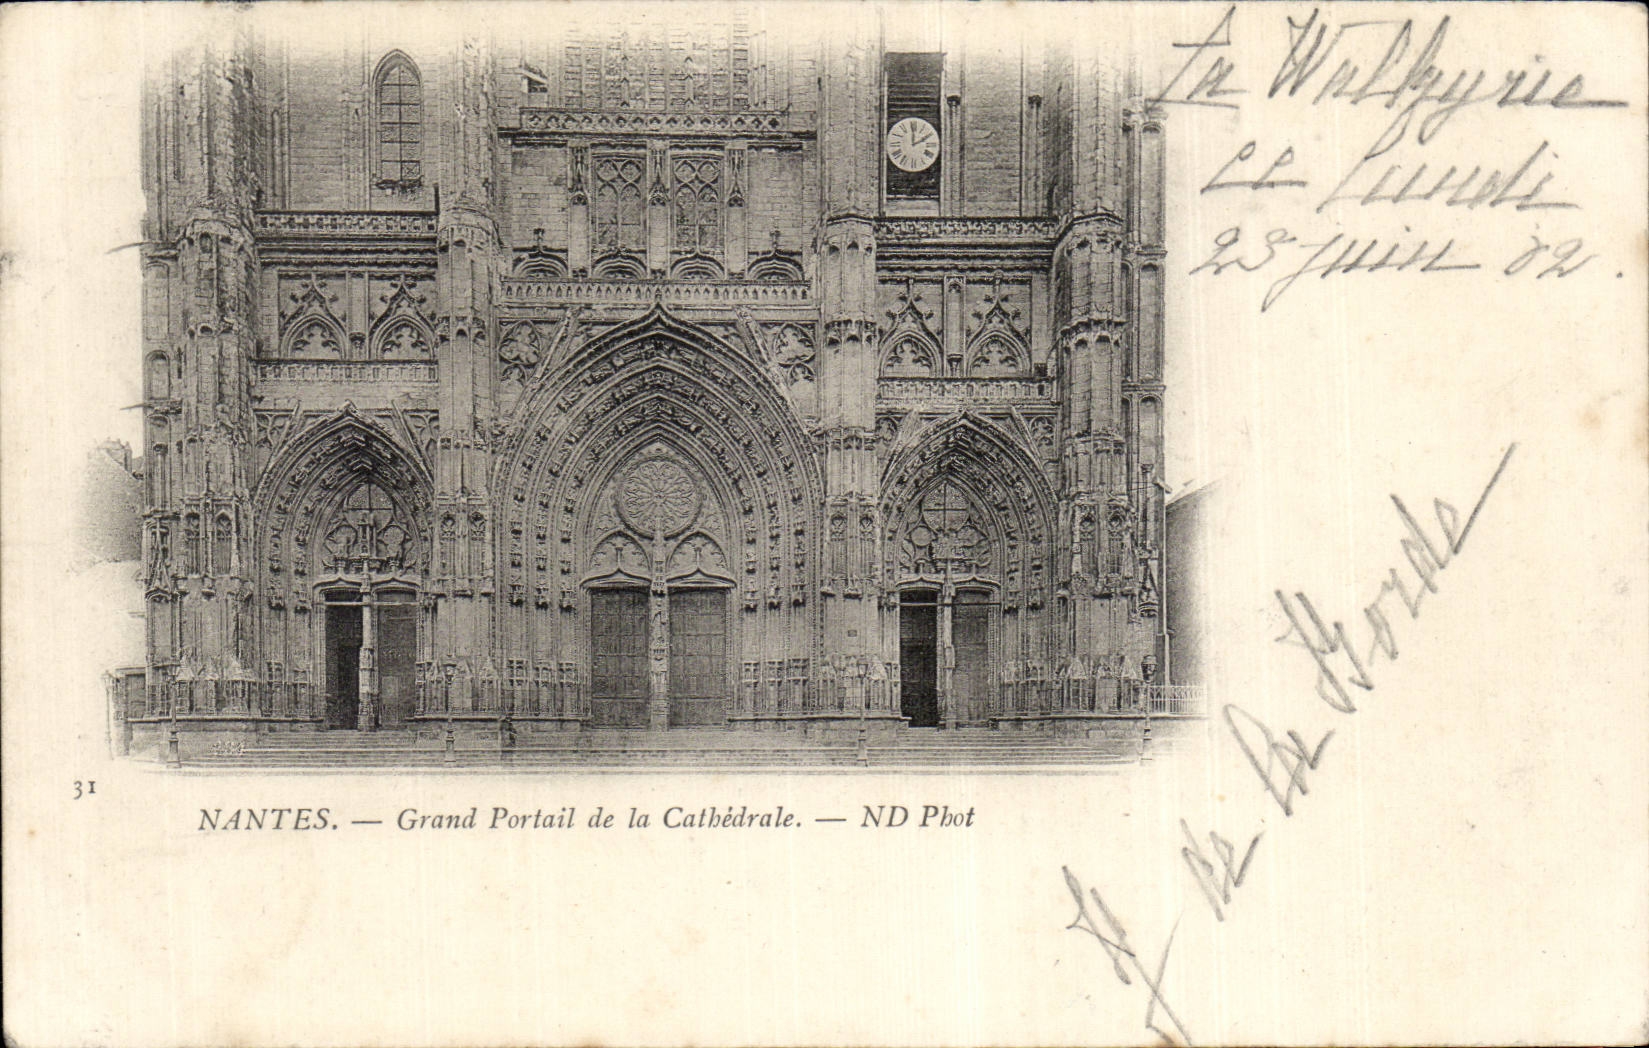 La Walkyrie
ce lundi
23 juin 02.
de La Borde
31
NANTES. — Grand Portail de la Cathédrale. — ND Phot